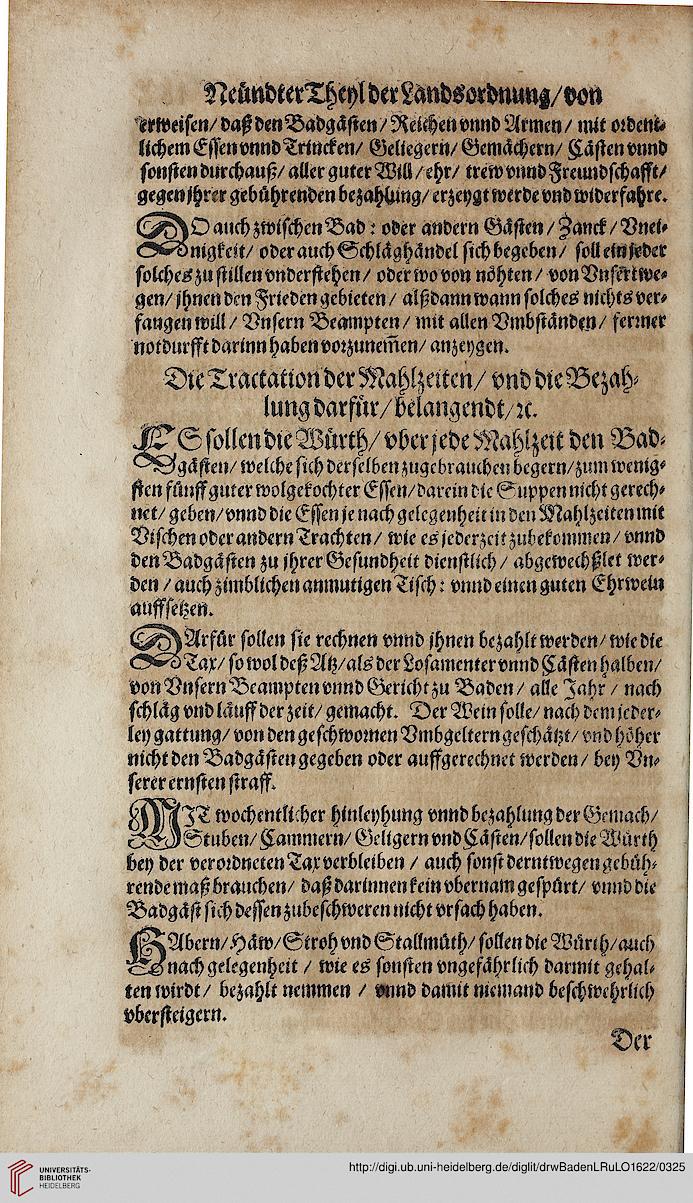 Neündter Theyl der Landsordnung/ von
erweisen/ daß den Badgästen/ Reichen vnnd Armen/ mit ordent⸗
lichem Essen vnnd Trincken/ Geliegern/ Gemächern/ Cästen vnnd
sonsten durchauß/ aller guter Will/ ehr/ trew vnnd Freundschafft/
gegen jhrer gebührenden bezahlung/ erzeygt werde vnd widerfahre.
DO auch zwischen Bad: oder andern Gästen/ Zanck/ Vnei⸗
nigkeit/ oder auch Schläghändel sich begeben/ soll ein jeder
solches zu stillen vnderstehen/ oder wo von nöhten/ von Vnsert we⸗
gen/ jhnen den Frieden gebieten/ alßdann wann solches nichts ver⸗
fangen will/ Vnsern Beampten/ mit allen Vmbständen/ ferrner
notdurfft darinn haben vorzunem̄en/ anzeygen.
Die Tractation der Mahlzeiten/ vnd die Bezah⸗
lung darfür/ belangendt/ ꝛc.
ES sollen die Würth/ vber jede Mahlzeit den Bad⸗
gästen/ welche sich derselben zugebrauchen begern/ zum wenig⸗
sten fünff guter wolgekochter Essen/ darein die Suppen nicht gerech⸗
net/ geben/ vnnd die Essen je nach gelegenheit in den Mahlzeiten mit
Vischen oder andern Trachten/ wie es jederzeit zubekommen/ vnnd
den Badgästen zu jhrer Gesundheit dienstlich/ abgewechßlet wer⸗
den/ auch zimblichen anmutigen Tisch: vnnd einen guten Ehrwein
auffsetzen.
DArfür sollen sie rechnen vnnd jhnen bezahlt werden/ wie die
Tax/ so wol deß Atz/ als der Losamenter vnnd Cästen halben/
von Vnsern Beampten vnnd Gericht zu Baden/ alle Jahr/ nach
schläg vnd läuff der zeit/ gemacht. Der Wein solle/ nach dem jeder⸗
ley gattung/ von den geschwornen Vmbgeltern geschätzt/ vnd höher
nicht den Badgästen gegeben oder auffgerechnet werden/ bey Vn⸗
serer ernsten straff.
MIT wochentlicher hinleyhung vnnd bezahlung der Gemach/
Stuben/ Cammern/ Geligern vnd Cästen/ sollen die Würth
bey der verordneten Tax verbleiben/ auch sonst derntwegen gebüh⸗
rende maß brauchen/ daß darinnen kein vbernam gespürt/ vnnd die
Badgäst sich dessen zubeschweren nicht vrsach haben.
HAbern/ Häw/ Stroh vnd Stallmüth/ sollen die Würth/ auch
nach gelegenheit/ wie es sonsten vngefährlich darmit gehal⸗
ten wirdt/ bezahlt nemmen/ vnnd damit niemand beschwehrlich
vbersteigern.
Der
UNIVERSITÄTS-
BIBLIOTHEK
HEIDELBERG
http://digi.ub.uni-heidelberg.de/diglit/drwBadenLRuLO1622/0325